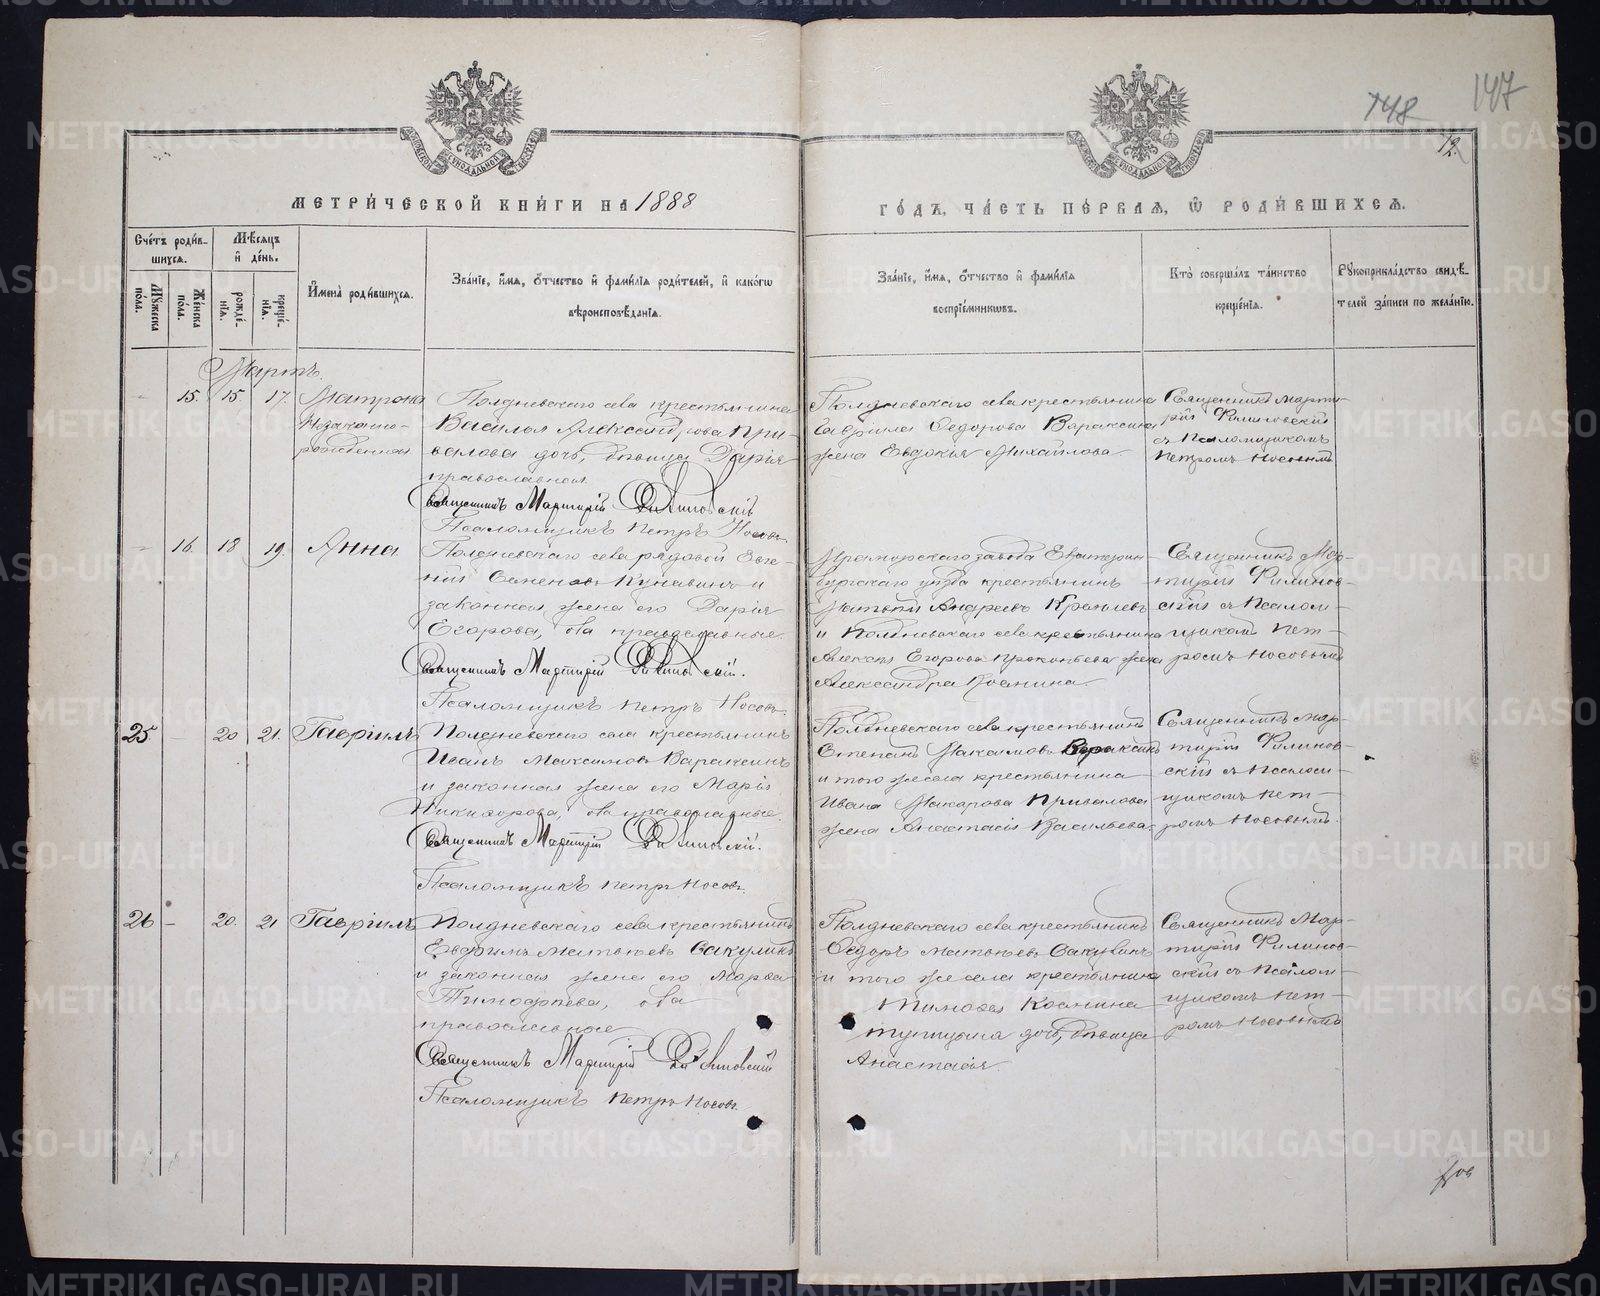 148 147
12.
МЕТРИЧЕСКОЙ КНИГИ НА 1888
ГОДЪ, ЧАСТЬ ПЕРВАЯ, Ѡ РОДИВШИХСЯ.
Счетъ родившихся.
Мужеска пола.
Женска пола.
Мѣсяцъ и день.
рожденія.
крещенія.
Имена родившихся.
Званіе, имя, отчество и фамилія родителей, и какогѡ
вѣроисповѣданія.
Званіе, имя, отчество и фамилія
воспріемниковъ.
Кто совершалъ таинство
крещенія.
Рукоприкладство свидѣ-
телей записи по желанію.
Мартъ.
- 15. 15. 17. Матрона
Незаконно-
рожденная
Полдневскаго села крестьянина
Василья Александрова При-
валова дочь, дѣвица Дарія
православная
Священникъ Мартирій Филиповскій
Псаломщикъ Петръ Носовъ
Полдневскаго села крестьянина
Гавріила Ѳедорова Вараксина
жена Евдокія Михайлова
Священникъ Марти-
рій Филиповскій
съ Псаломщикомъ
Петромъ Носовымъ
- 16. 18 19. Анна
Полдневскаго села рядовой Евге-
ній Семеновъ Кунавинъ и
законная жена его Дарія
Егорова, оба православные.
Священникъ Мартирій Филиповскій.
Псаломщикъ Петръ Носовъ.
Мраморскаго завода Екатерин-
бургскаго уѣзда крестьянинъ
Матвѣй Андреевъ
и Полдневскаго села крестьянина
Алексѣя Егорова Прокопьева жена
Александра Косьмина
Священникъ Мар-
тирій Филипов-
скій съ Псалом-
щикомъ Пет-
ромъ Носовымъ
25 - 20 21. Гавріилъ
Полдневскаго села крестьянинъ
Иванъ Максимовъ Вараксинъ
и законная жена его Марія
Никифорова, оба православные.
Священникъ Мартирій Филиповскій.
Псаломщикъ Петръ Носовъ.
Полдневскаго села крестьянинъ
Степанъ Максимовъ Вараксинъ
и того же села крестьянина
Ивана Макарова Привалова
жена Анастасія Васильева.
Священникъ Мар-
тирій Филипов-
скій съ Псалом-
щикомъ Пет-
ромъ Носовымъ.
26 - 20. 21 Гавріилъ
Полдневскаго села крестьянинъ
Евдокимъ Матвѣевъ
и законная жена его Марѳа
Тимоѳѣева, оба
православные
Священникъ Мартирій Филиповскій
Псаломщикъ Петръ Носовъ.
Полдневскаго села крестьянинъ
Ѳедоръ Матвѣевъ
и того же села крестьянина
Тимоѳея Косьмина
дочь, дѣвица
Анастасія.
Священникъ Мар-
тирій Филипов-
скій съ Псалом-
щикомъ Пет-
ромъ Носовымъ
METRIKI.GASO-URAL.RU